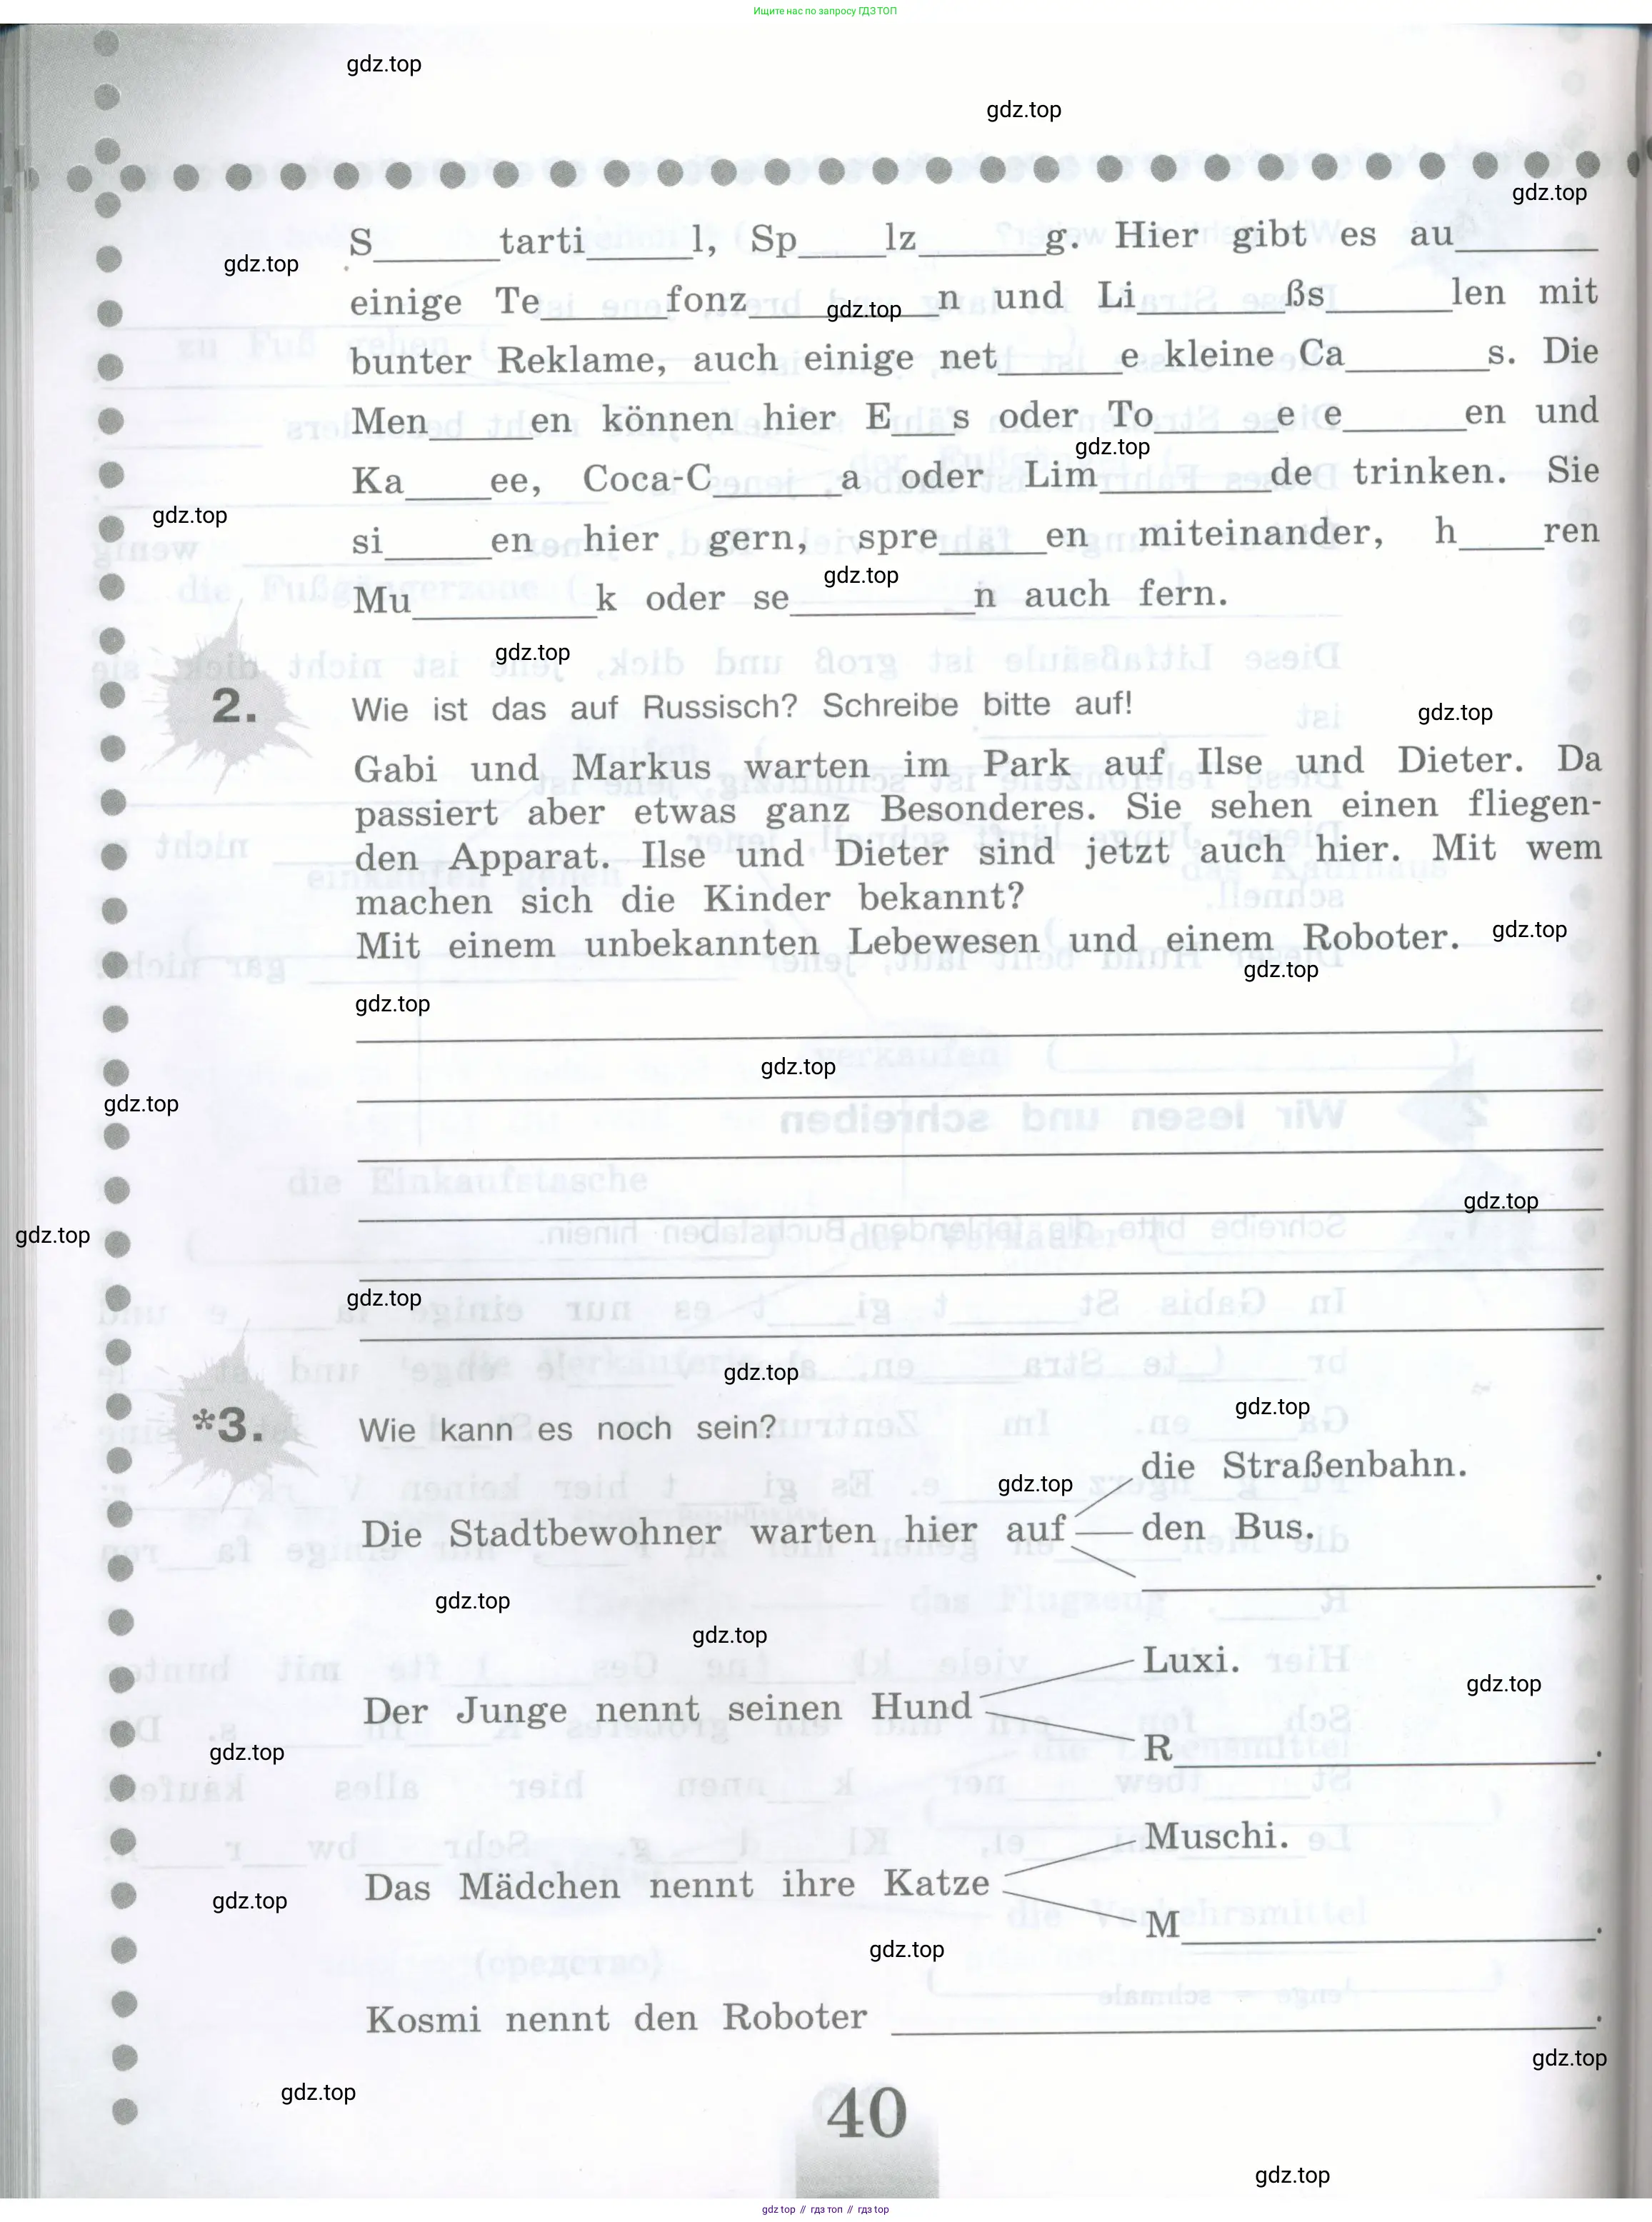 Ищите нас по запросу ГДЗ ТОП
gdz.top
gdz.top
gdz.top
S______tarti_____l, Sp____lz______g. Hier gibt es au_______
gdz.top
einige Te______fonz_________n und Li_______ßs______len mit
gdz.top
bunter Reklame, auch einige net______e kleine Ca_______s. Die
Men_____en können hier E___s oder To______e e______en und
gdz.top
Ka____ee, Coca-C______a oder Lim________de trinken. Sie
gdz.top
si_____en hier gern, spre_____en miteinander, h____ren
gdz.top
Mu_________k oder se_________n auch fern.
gdz.top
2. Wie ist das auf Russisch? Schreibe bitte auf!
gdz.top
Gabi und Markus warten im Park auf Ilse und Dieter. Da
passiert aber etwas ganz Besonderes. Sie sehen einen fliegen-
den Apparat. Ilse und Dieter sind jetzt auch hier. Mit wem
machen sich die Kinder bekannt?
Mit einem unbekannten Lebewesen und einem Roboter.
gdz.top
gdz.top
gdz.top
gdz.top
gdz.top
gdz.top
gdz.top
gdz.top
gdz.top
gdz.top
*3. Wie kann es noch sein?
die Straßenbahn.
gdz.top
Die Stadtbewohner warten hier auf den Bus.
____________________.
gdz.top
gdz.top
Luxi.
gdz.top
Der Junge nennt seinen Hund
R____________________.
gdz.top
Muschi.
Das Mädchen nennt ihre Katze
gdz.top
M____________________.
gdz.top
Kosmi nennt den Roboter ____________________.
gdz.top
gdz.top
40
gdz.top
gdz top // гдз топ // гдз top